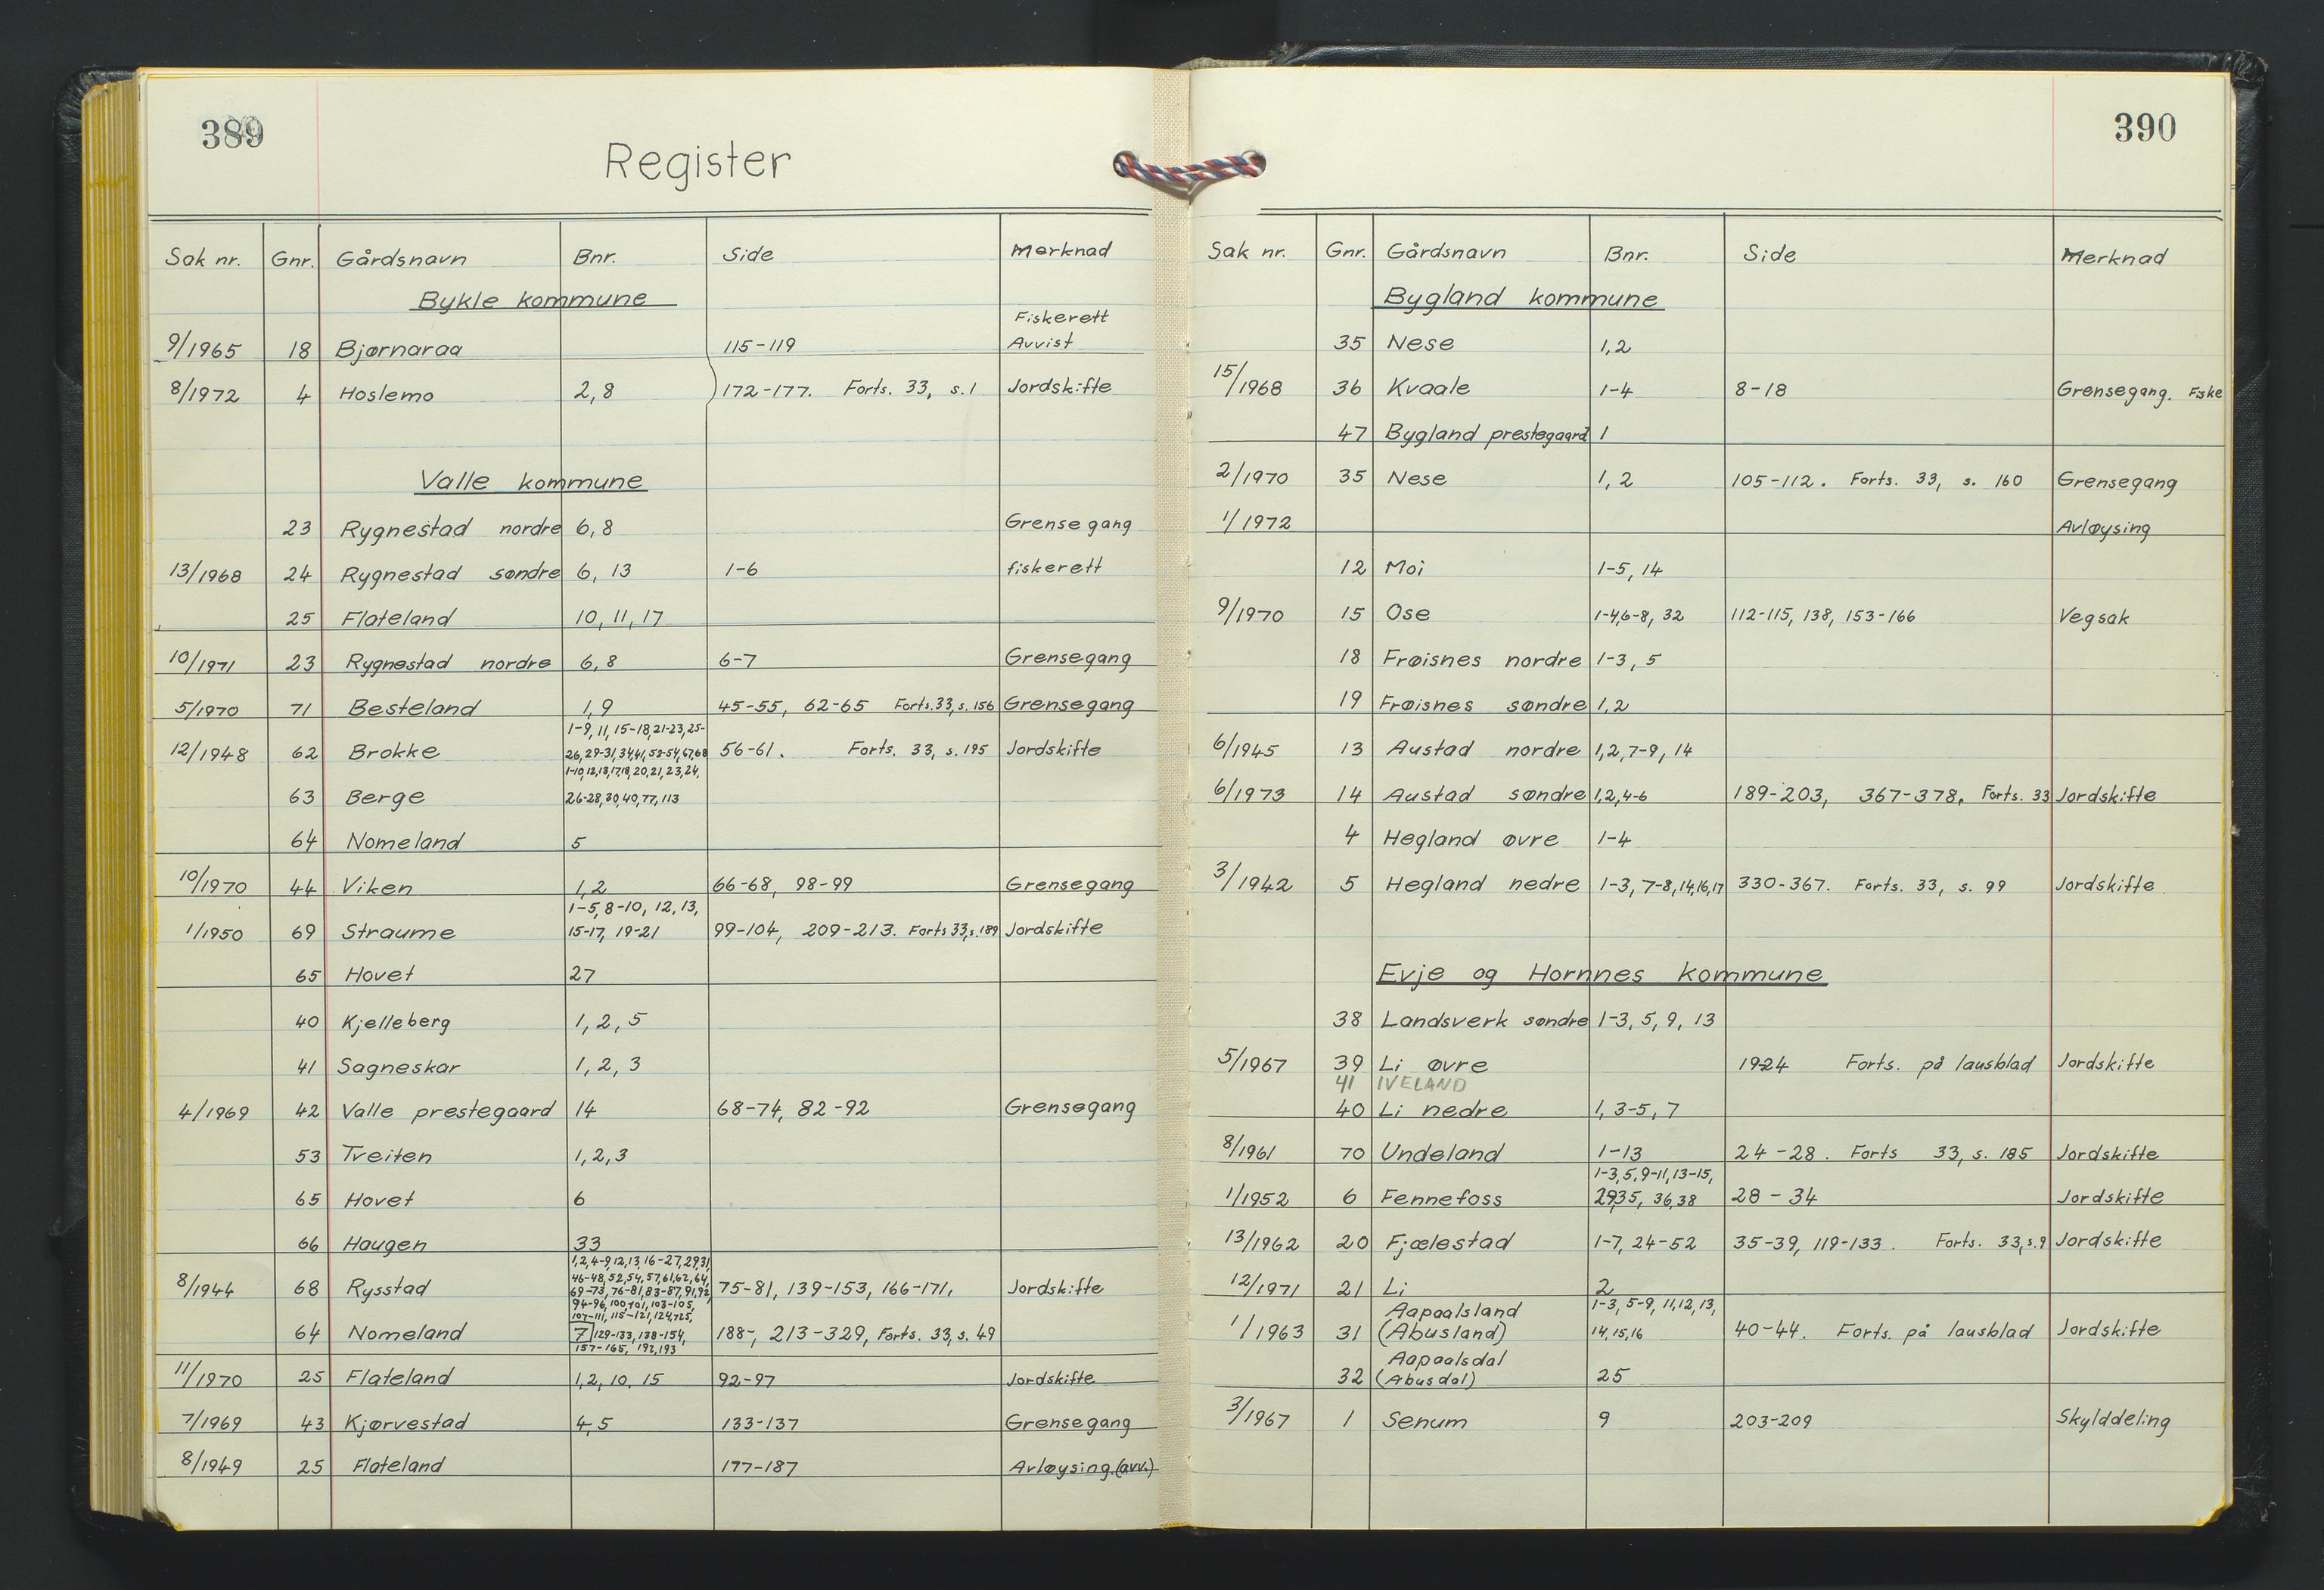 389
Register
Sak nr. Gnr. Gårdsnavn Bnr. Side Merknad
Bykle kommune
Fiskerett
9/1965 18 Bjørnaraa 115-119 Avvist
8/1972 4 Hoslemo 2,8 172-177. Forts. 33, s.1 Jordskifte
Valle kommune
23 Rygnestad nordre 6,8 Grensegang
13/1968 24 Rygnestad søndre 6, 13 1-6 fiskerett
25 Flateland 10, 11, 17
10/1971 23 Rygnestad nordre 6,8 6-7 Grensegang
5/1970 71 Besteland 1,9 45-55, 62-65 Forts.33,s.156 Grensegang
1-9, 11, 15-18, 21-23, 25-
12/1948 62 Brokke 26, 29-31, 34,41, 53-54, 67,68 56-61. Forts. 33, s.195 Jordskifte
1-10, 12, 13, 17, 18, 20, 21, 23, 24,
63 Berge 26-28, 30, 40, 77, 113
64 Nomeland 5
10/1970 44 Viken 1,2 66-68, 98-99 Grensegang
1-5, 8-10, 12, 13,
1/1950 69 Straume 15-17, 19-21 99-104, 209-213. Forts 33,s.189 Jordskifte
65 Hovet 27
40 Kjelleberg 1, 2, 5
41 Sagneskar 1, 2, 3
4/1969 42 Valle prestegaard 14 68-74, 82-92 Grensegang
53 Treiten 1, 2, 3
65 Hovet 6
66 Haugen 33
1,2,4-9,12,13,16-27,29,31,
46-48, 52,54, 57,61,62, 64,
8/1944 68 Rysstad 69-73, 76-81, 83-87, 91,92, 75-81, 139-153, 166-171, Jordskifte
94-96, 100,101, 103-105,
107-111, 115-121, 124,125,
64 Nomeland 7 129-133, 138-154, 188-, 213-329, Forts. 33, s. 49
157-165, 192,193
11/1970 25 Flateland 1,2, 10, 15 92-97 Jordskifte
7/1969 43 Kjørvestad 4,5 133-137 Grensegang
8/1949 25 Flateland 177-187 Avløysing (avv.)
390
Sak nr. Gnr. Gårdsnavn Bnr. Side Merknad
Bygland kommune
35 Nese 1,2
15/1968 36 Kvaale 1-4 8-18 Grensegang. Fiske
47 Bygland prestegaard 1
2/1970 35 Nese 1, 2 105-112. Forts. 33, s. 160 Grensegang
1/1972 Avløysing
12 Moi 1-5, 14
9/1970 15 Ose 1-4,6-8, 32 112-115, 138, 153-166 Vegsak
18 Frøisnes nordre 1-3, 5
19 Frøisnes søndre 1,2
6/1945 13 Austad nordre 1,2, 7-9, 14
6/1973 14 Austad søndre 1,2,4-6 189-203, 367-378. Forts. 33 Jordskifte
4 Hegland øvre 1-4
3/1942 5 Hegland nedre 1-3, 7-8, 14,16,17 330-367. Forts. 33, s. 99 Jordskifte
Evje og Hornnes kommune
38 Landsverk søndre 1-3, 5, 9, 13
5/1967 39 Li øvre 19-24 Forts. på lausblad Jordskifte
41 IVELAND
40 Li nedre 1, 3-5, 7
8/1961 70 Undeland 1-13 24-28. Forts 33, s. 185 Jordskifte
1-3, 5, 9-11, 13-15,
1/1952 6 Fennefoss 29,35, 36,38 28-34 Jordskifte
13/1962 20 Fjælestad 1-7, 24-52 35-39, 119-133. Forts. 33,s.9 Jordskifte
12/1971 21 Li 2
Aapaalsland 1-3, 5-9, 11,12, 13,
1/1963 31 (Abusland) 14,15,16 40-44. Forts. på lausblad Jordskifte
Aapaalsdal
32 (Abusdal) 25
3/1967 1 Senum 9 203-209 Skylddeling